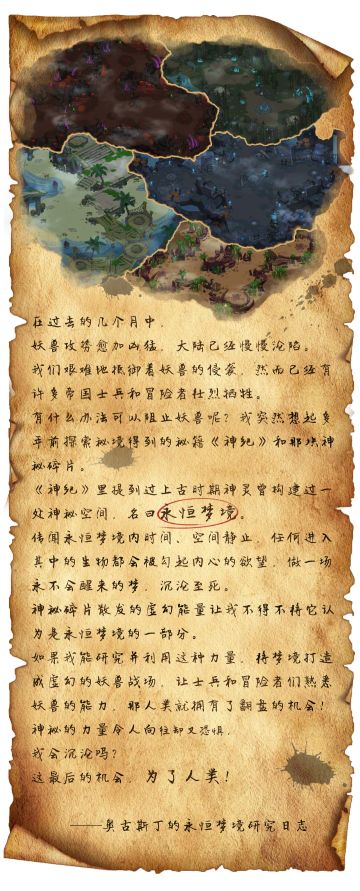 在过去的几个月中，
妖兽攻势愈加凶猛，大陆已经慢慢沦陷。
我们艰难地抵御着妖兽的侵袭，然而已经有
许多帝国士兵和冒险者壮烈牺牲。
有什么办法可以阻止妖兽呢？我突然想起多
年前探索秘境得到的秘籍《神纪》和那块神
秘碎片。
《神纪》里提到过上古时期神灵曾构建过一
处神秘空间，名曰永恒梦境。
传闻永恒梦境内时间、空间静止，任何进入
其中的生物都会被勾起内心的欲望，做一场
永不会醒来的梦，沉沦至死。
神秘碎片散发的虚幻能量让我不得不将它认
为是永恒梦境的一部分。
如果我能研究并利用这种力量，将梦境打造
成虚幻的妖兽战场，让士兵和冒险者们熟悉
妖兽的能力，那人类就拥有了翻盘的机会！
神秘的力量令人向往却又恐惧，
我会沉沦吗？
这最后的机会，为了人类！
——奥古斯丁的永恒梦境研究日志